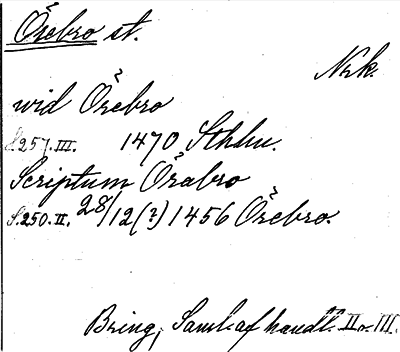 Örebro st.
Nrk.
wid Örebro
S. 257. III. 1470 Sthlm.
Scriptum Örabro
S. 250. II. 28/12 (?) 1456 Örebro.
Bring, Saml. af handl. II o. III.